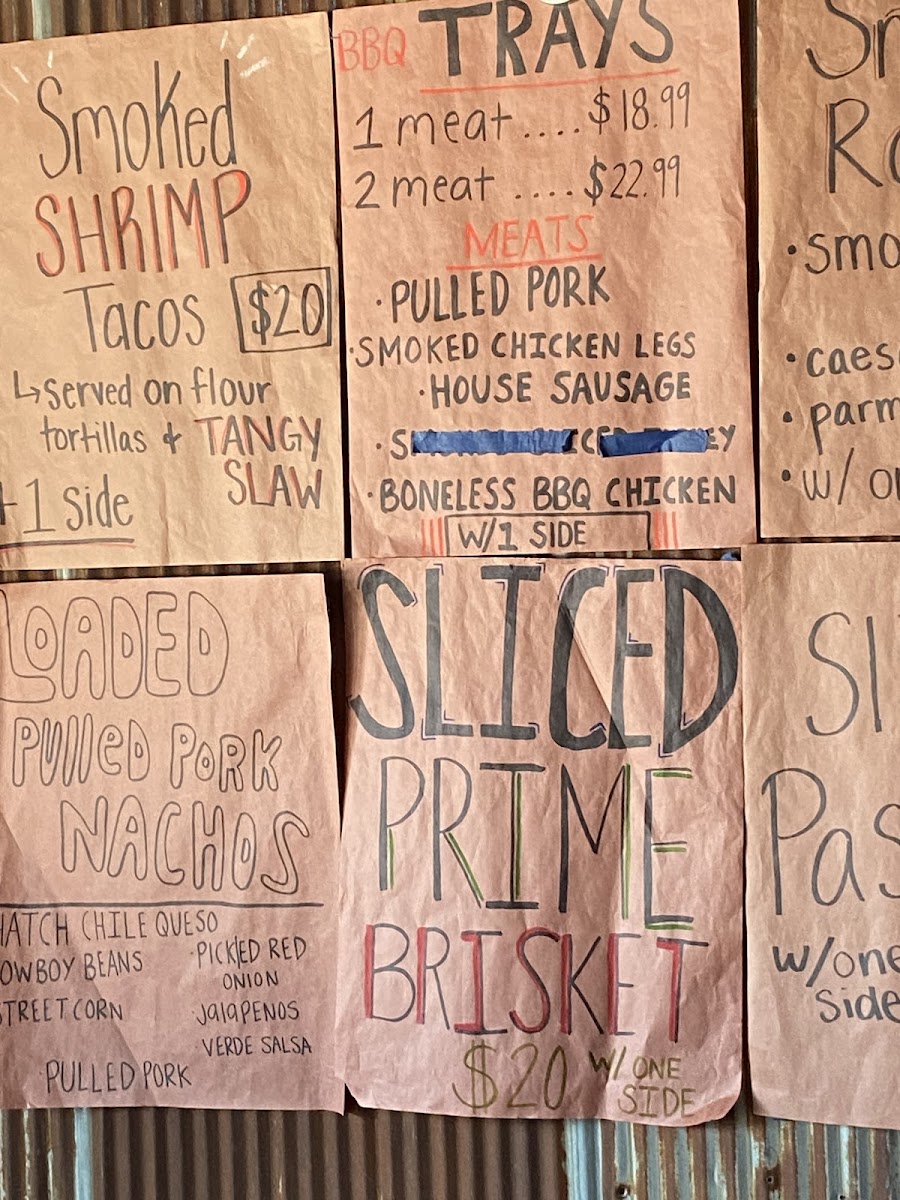 Smoked
SHRIMP
Tacos $20
↳served on flour
tortillas & TANGY
SLAW
+1 side
BBQ TRAYS
1 meat....$18.99
2 meat ....$22.99
MEATS
·PULLED PORK
·SMOKED CHICKEN LEGS
·HOUSE SAUSAGE
·BONELESS BBQ CHICKEN
W/1 SIDE
·smo
·caes
·parm
·w/ on
LOADED
PUlleD PORK
NACHOS
HATCH CHILE QUESO
OWBOY BEANS
STREET CORN
PULLED PORK
·PICKlED RED
ONION
·JalaPENOS
VERDE SALSA
SLICED
PRIME
BRISKET
$20 W/ ONE
SIDE
Sl
Pas
w/one
side